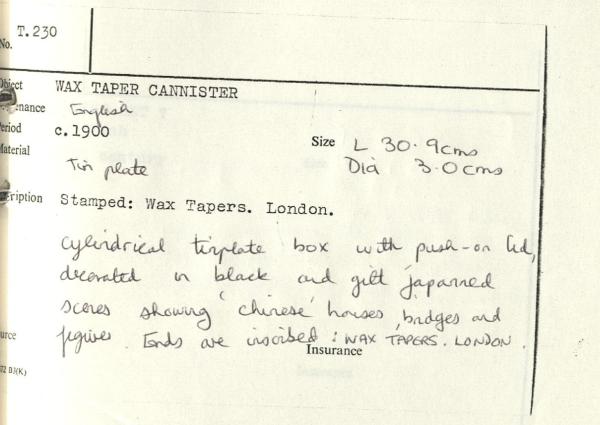 No. T.230
Object WAX TAPER CANNISTER
nance English
Period c.1900
Size L 30.9cms
Material Tin plate
Dia 3.0cms
ription Stamped: Wax Tapers. London.
cylindrical tinplate box with push-on lid,
decorated in black and gilt japanned
scenes showing 'chinese' houses, bridges and
figures. Ends are inscribed: WAX TAPERS. LONDON.
ource
Insurance
72 B3(K)